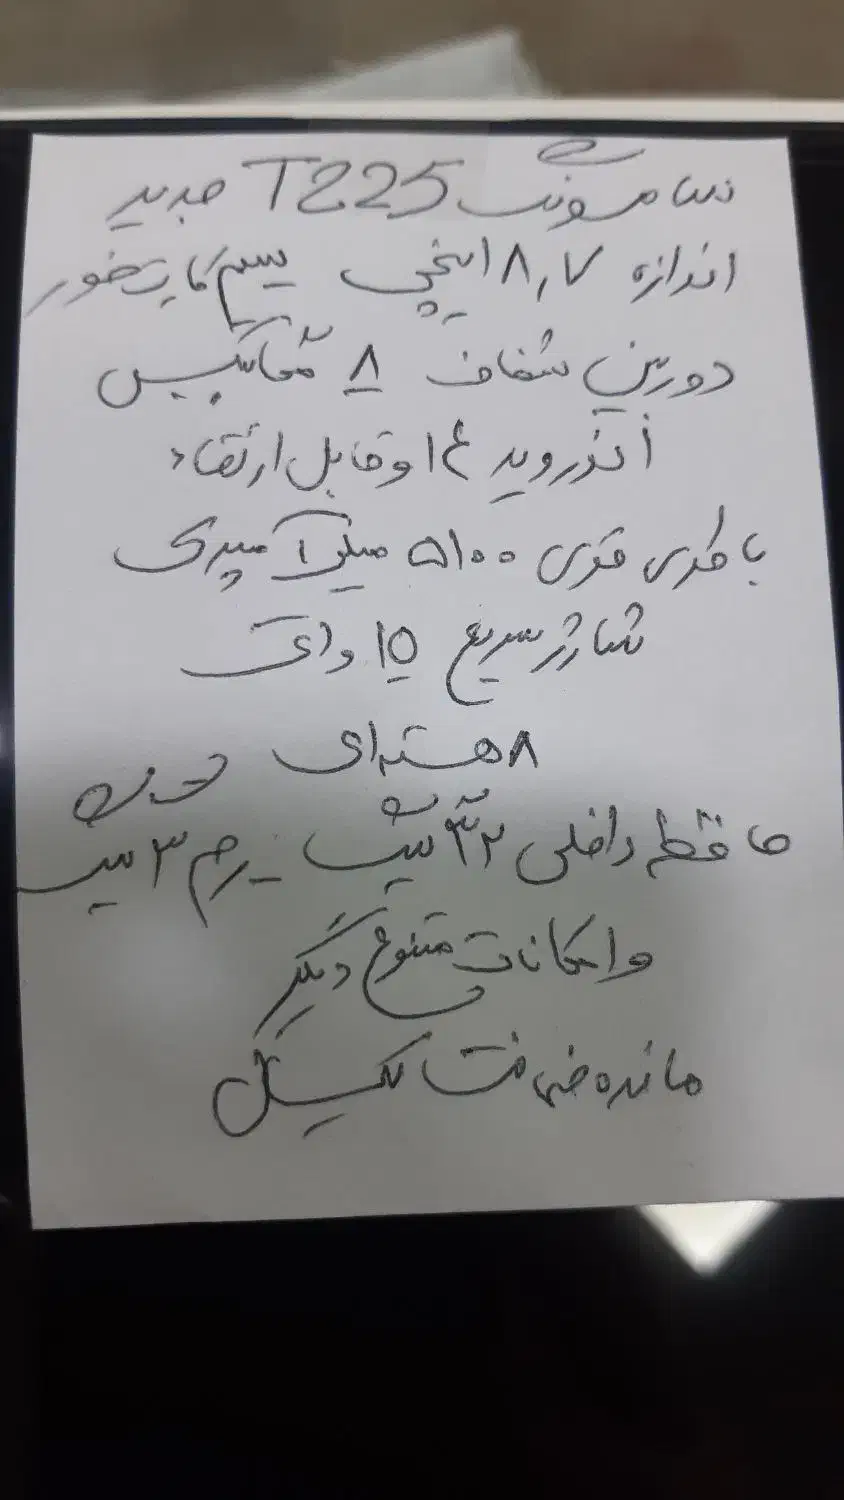 سامسونگ T225 جدید
اندازه ۸,۷ اینچی سیم کارت خور
دوربین شفاف ۸ مگاپیکسل
اندروید ۱۴ و قابل ارتقاء
باطری قوی ۵۱۰۰ میلی آمپری
شارژ سریع ۱۵ واتی
۸ هسته ای قوی
حافظه داخلی ۳۲ گیگ - رم ۳ گیگ
و امکانات متنوع دیگر
مانده ضمانت